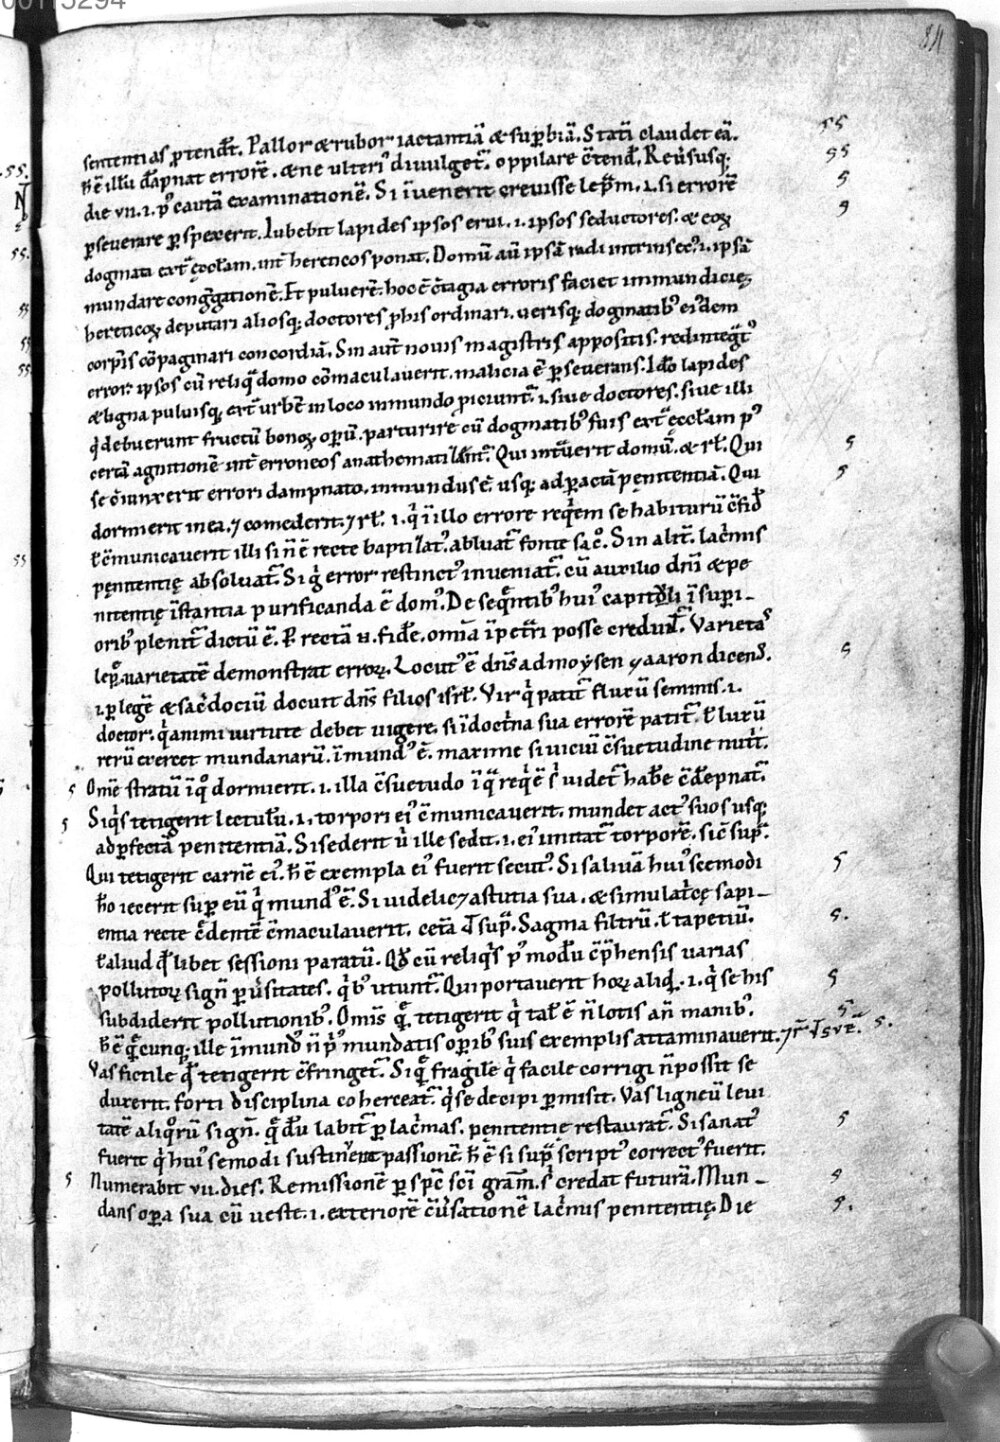 00115294
84
sententias ꝑtendēt. Pallor & rubor iactantiā & suꝑbiā. Statī claudet eā. 55
h̄ ē illū dāpnat errorē. & ne ulteri᾽ diuulget᷑. oppilare c̄tend&. Reuersusq; 55
die vii. i. p᾽ cautā examinationē. Si īuenerit creuisse leprām. i. si errorē
ꝑseuerare ꝑspexerit. Iubebit lapides ipsos erui. i. ipsos seductores. & eoꝝ
dogmata ext᷑ ęcclam. int᷑ hereticos ponat. Domū aut ipsā radi intrinsec᾽. i. ipsā
mundare congregationē. Et puluerē. hoc ē c̄tagia erroris faciet inmundicię
hereticoꝝ deputari aliosq; doctores ꝓbis ordinari. uerisq; dogmatib᾽ eiusdem
corꝑis cōpaginari concordiā. Sin aut nouis magistris appositis. redintegrat᾽
error. ipsos cū reliqua domo cōmaculauerit. malicia ē ꝑseuerans. Ido lapides
& ligna puluisq; ext᷑ urbē in loco inmundo ꝓiciunt᷑. i. siue doctores. siue illi
q̄ debuerunt fructū bonoꝝ oꝑū. parturire cū dogmatib᾽ suis ext᷑ ęcclam p᾽
certā agnitionē int᷑ erroneos anathematizant᷑. Qui intrauerit domū. & rł. Qui
se c̄iunxerit errori dampnato. inmundus ē usq; ad ꝑactā penitentiā. Qui
dormierit in ea. ⁊ comederit. ⁊ rł. i. q̄ ī illo errore requiem se habiturū c̄fid&
ł c̄municauerit illi si n̄ ē recte baptizat᾽. abluat᷑ fonte sacro. Sin alit᷑. lacrimis
penitentię absoluat᷑. Si q̄ error restinct᾽ inueniat᷑. cū auxilio dn̄i & pe
nitentię īstantia purificanda ē dom᾽. De sequentib᾽ hui᾽ capituli ī suꝑi-
orib᾽ plenit᷑ dictū ē. ꝑ rectā n. fidē. omīa īpetrari posse credunt᷑. Varietas
leprę uarietatē demonstrat erroꝝ. Locut᾽ ē dn̄s ad moysen ⁊ aaron dicens.
i. ꝑ legē & sac̄dociū docuit dn̄s filios isrł. Vir q̄ patit᷑ fluxū seminis. i.
doctor. q̄ animi uirtute debet uigere. si ī doctrina sua errorē patit᷑. ł luxū
rerū exercet mundanarū. īmund᾽ ē. maxime si uiciū c̄suetudine nutrit.
5 Omē stratū ī q̊ dormierit. i. illa c̄suetudo ī qua requiē s᷑ uidet᷑ habē c̄dēpnat᷑.
5 Siq̄s tetigerit lectulū. i. torpori ei᾽ c̄municauerit. mundet act᾽ suos usq;
ad ꝑfectā penitentiā. Si sederit u᷑ ille sedit. i. ei᾽ imitat᷑ torporē. sic sup᷑.
Qui tetigerit carnē ei᾽. h̄ ē exempla ei᾽ fuerit secut᾽. Si saliuā hui᾽scemodi
hō iecerit suꝑ eū q̄ mund᾽ ē. Si uidelic& astutia sua. & simulatricę sapi-
entia recte c̄dentē c̄maculauerit. ceta ut sup᷑. Sagma filtrū. ł tapetiū.
ł aliud qd libet sessioni paratū. Qd cū reliquis p᾽ modū c̄p̄hensis uarias
pollutoꝝ sign᷑ ꝑuersitates. q̄b᾽ utunt᷑. Qui portauerit hoꝝ aliqd. i. q̄ se his
subdiderit pollutionib᾽. Omīs quę tetigerit q̄ tal᾽ ē n̄ lotis an̄ manib᾽.
h̄ ē quēcunq; ille īmund᾽ n̄ pr᾽ mundatis oꝑib᾽ suis exemplis attaminauerit. ⁊ r᷑
Vas fictile qd tetigerit c̄fringet᷑. Si quē fragilē q̄ facile corrigi n̄ possit se
duxerit. forti disciplina coherceat᷑. q̄ se decipi ꝑmisit. Vas ligneū leui
tatē aliquorū sign᷑. quę dū labit᷑ ꝑ lacrimas. penitentię restaurat᷑. Si sanat᾽
fuerit q̄ hui᾽semodi sustinet passionē. h̄ ē si sup᷑ script᾽ correct᾽ fuerit.
5 Numerabit vii. dies. Remissionē ꝑ spc̄ sc̄i gram̄. s᷑ credat futurā. Mun-
dans oꝑa sua cū ueste. i. exteriorē c̄uersationē lacrimis penitentię. Die